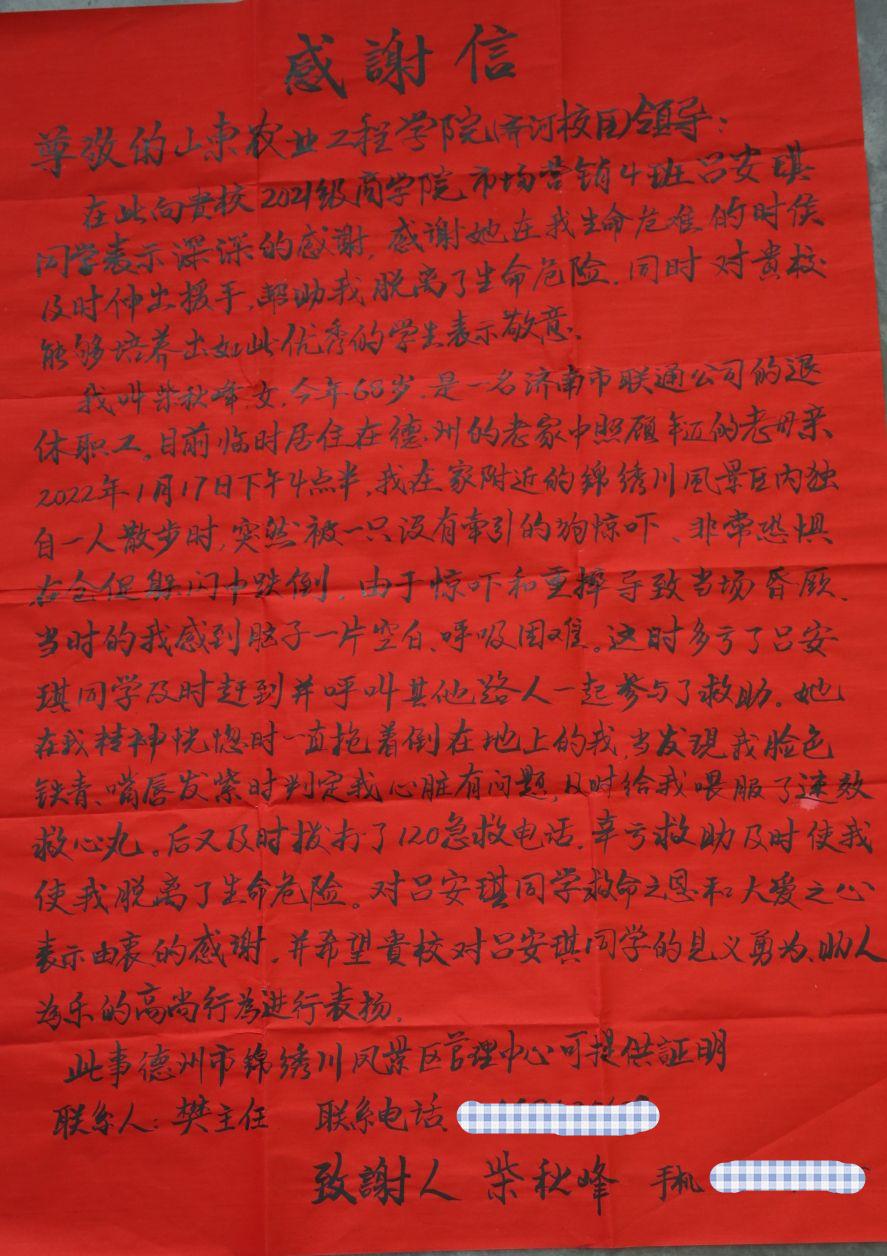 感謝信
尊敬的山东农业工程学院(齐河校区)领导:
在此向贵校2021级商学院市场营销4班吕安琪
同学表示深深的感谢,感谢她在我生命危难的时侯
及时伸出援手,帮助我脱离了生命危险.同时对貴校
能够培养出如此优秀的学生表示敬意.
我叫柴秋峰,女,今年68岁.是一名济南市联通公司的退
休职工。目前临时居住在德州的老家中照顾年迈的老母亲
2022年1月17日下午4点半,我在家附近的锦绣川風景区内独
自一人散步时,突然被一只没有牵引的狗惊吓、非常恐惧
在仓促躲闪中跌倒.由于惊吓和重摔导致当场昏厥.
当时的我感到脑子一片空白、呼吸困难。这时多亏了吕安
琪同学及时赶到并呼叫其他路人一起参与了救助。她
在我精神恍惚时一直抱着倒在地上的我,当发現我脸色
铁青、嘴唇发紫时判定我心脏有问题,及时给我喂服了速效
救心丸。后又及时拔打了120急救电话.幸亏救助及时使我
使我脱离了生命危险。对吕安琪同学救命之恩和大爱之心
表示由衷的感谢.并希望貴校对吕安琪同学的見义勇为、助人
為乐的高尚行為进行表扬.
此事德州市錦綉川风景区管理中心可提供証明
联系人:樊主任 联系电话
致謝人 柴秋峰 手机